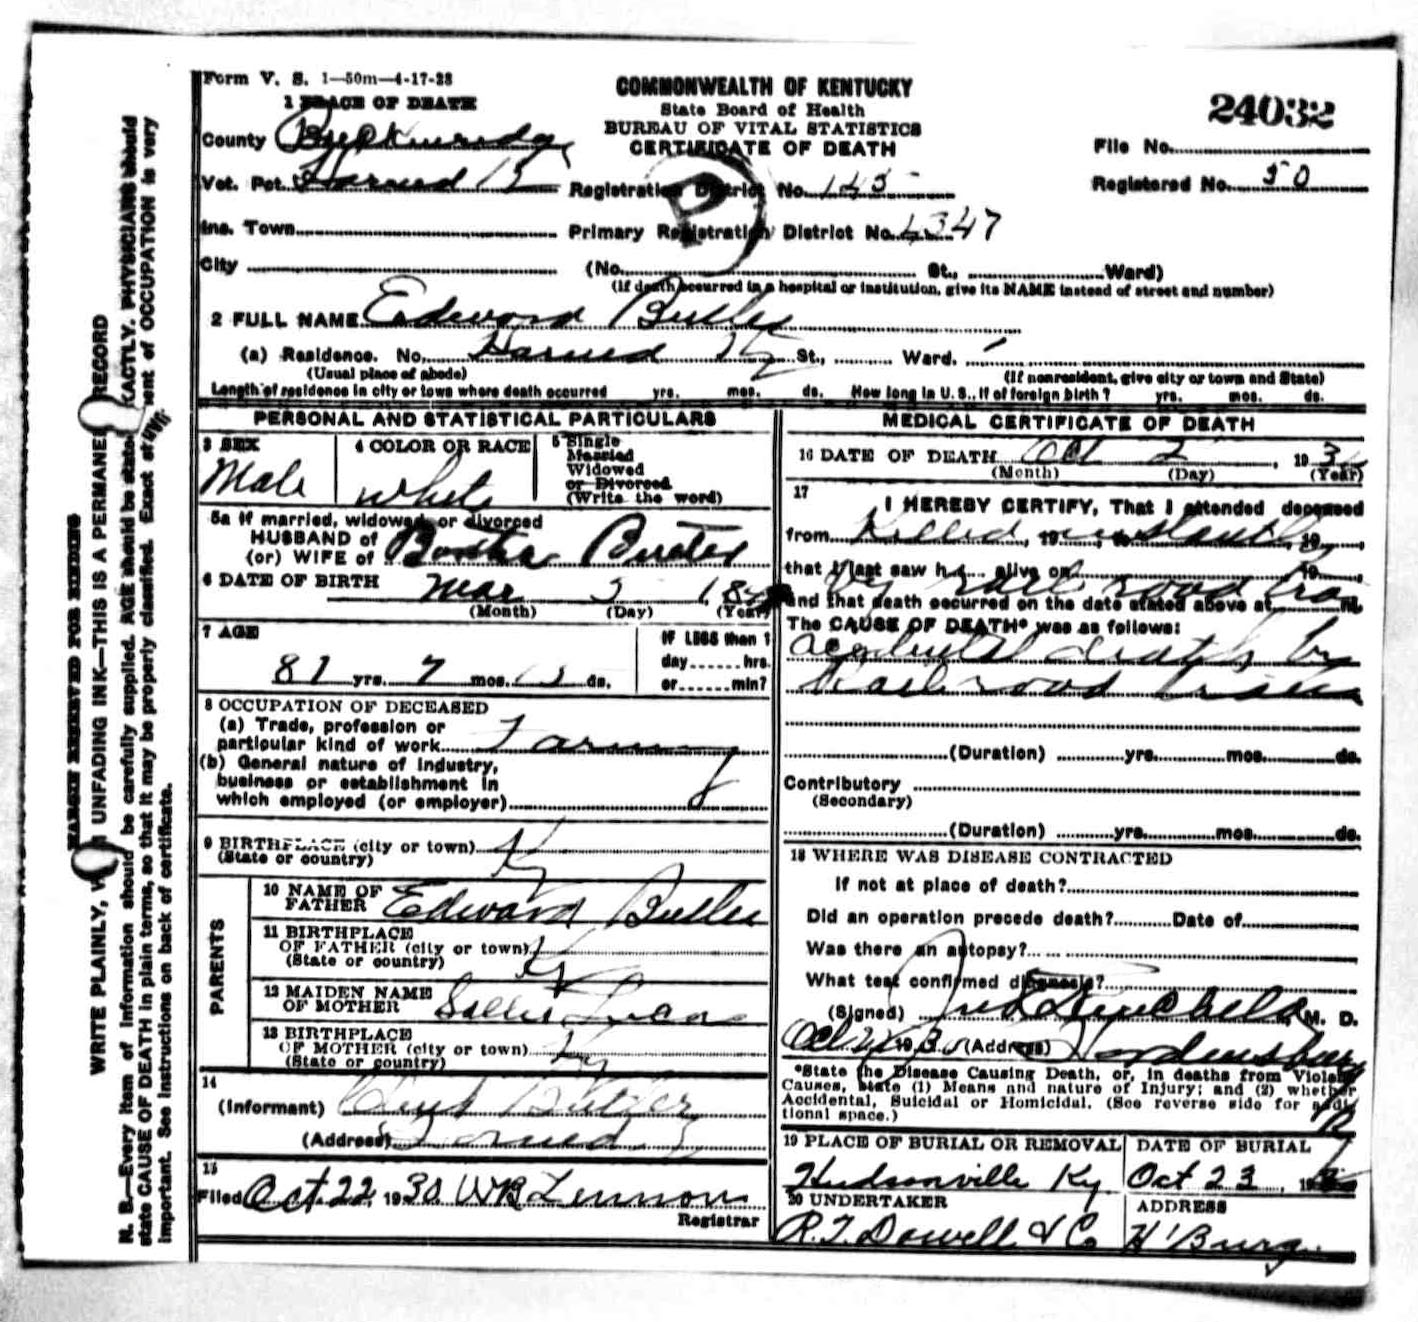 Form V. S. 1—50m—4-17-28
1 PLACE OF DEATH
COMMONWEALTH OF KENTUCKY
State Board of Health
BUREAU OF VITAL STATISTICS
CERTIFICATE OF DEATH
24032
County Breckinridge
File No.
Vot. Pct. Harned
Registration District No. 145
Registered No. 50
Ins. Town
Primary Registration District No. 4347
City
(No. St., Ward)
(If death occurred in a hospital or institution, give its NAME instead of street and number)
P
2 FULL NAME Edward Butler
(a) Residence. No. Harned Ky St., Ward.
(Usual place of abode)
(If nonresident, give city or town and State)
Length of residence in city or town where death occurred yrs. mos. ds. How long in U. S., if of foreign birth? yrs. mos. ds.
PERSONAL AND STATISTICAL PARTICULARS
3 SEX
Male
4 COLOR OR RACE
White
5 Single
Married
Widowed
or Divorced
(Write the word)
5a If married, widowed, or divorced
HUSBAND of
(or) WIFE of Butler
6 DATE OF BIRTH Mar
(Month) (Day) (Year)
7 AGE
81 yrs. 7 mos. ds.
If LESS than 1
day hrs.
or min?
8 OCCUPATION OF DECEASED
(a) Trade, profession or
particular kind of work Farming
(b) General nature of industry,
business or establishment in
which employed (or employer)
9 BIRTHPLACE (city or town) Ky
(State or country)
PARENTS
10 NAME OF
FATHER Edward Butler
11 BIRTHPLACE
OF FATHER (city or town) Ky
(State or country)
12 MAIDEN NAME
OF MOTHER Sallie Lucas
13 BIRTHPLACE
OF MOTHER (city or town) Ky
(State or country)
14
(Informant) Butler
(Address) Harned Ky
15
Filed Oct 22, 1930 Lennon
Registrar
MEDICAL CERTIFICATE OF DEATH
16 DATE OF DEATH Oct 2 , 193
(Month) (Day) (Year)
17
I HEREBY CERTIFY, That I attended deceased
from Killed, 19 , to instantly 19 ,
that I last saw h alive on by rail road 19 ,
and that death occurred on the date stated above at m.
The CAUSE OF DEATH* was as follows:
accidental death by
Rail road train
(Duration) yrs. mos. ds.
Contributory
(Secondary)
(Duration) yrs. mos. ds.
18 WHERE WAS DISEASE CONTRACTED
If not at place of death?
Did an operation precede death? Date of
Was there an autopsy?
What test confirmed diagnosis?
(Signed) Kincheloe, M. D.
Oct 1930 (Address) Hardinsburg
Ky
*State the Disease Causing Death, or, in deaths from Violent
Causes, state (1) Means and nature of Injury; and (2) whether
Accidental, Suicidal or Homicidal. (See reverse side for addi-
tional space.)
19 PLACE OF BURIAL OR REMOVAL
Hudsonville Ky
DATE OF BURIAL
Oct 23, 1930
20 UNDERTAKER
R. T. Dowell & Co
ADDRESS
H'Burg
MARGIN RESERVED FOR BINDING
WRITE PLAINLY, WITH UNFADING INK—THIS IS A PERMANENT RECORD
N. B.—Every item of information should be carefully supplied. AGE should be stated EXACTLY. PHYSICIANS should
state CAUSE OF DEATH in plain terms, so that it may be properly classified. Exact statement of OCCUPATION is very
important. See instructions on back of certificate.